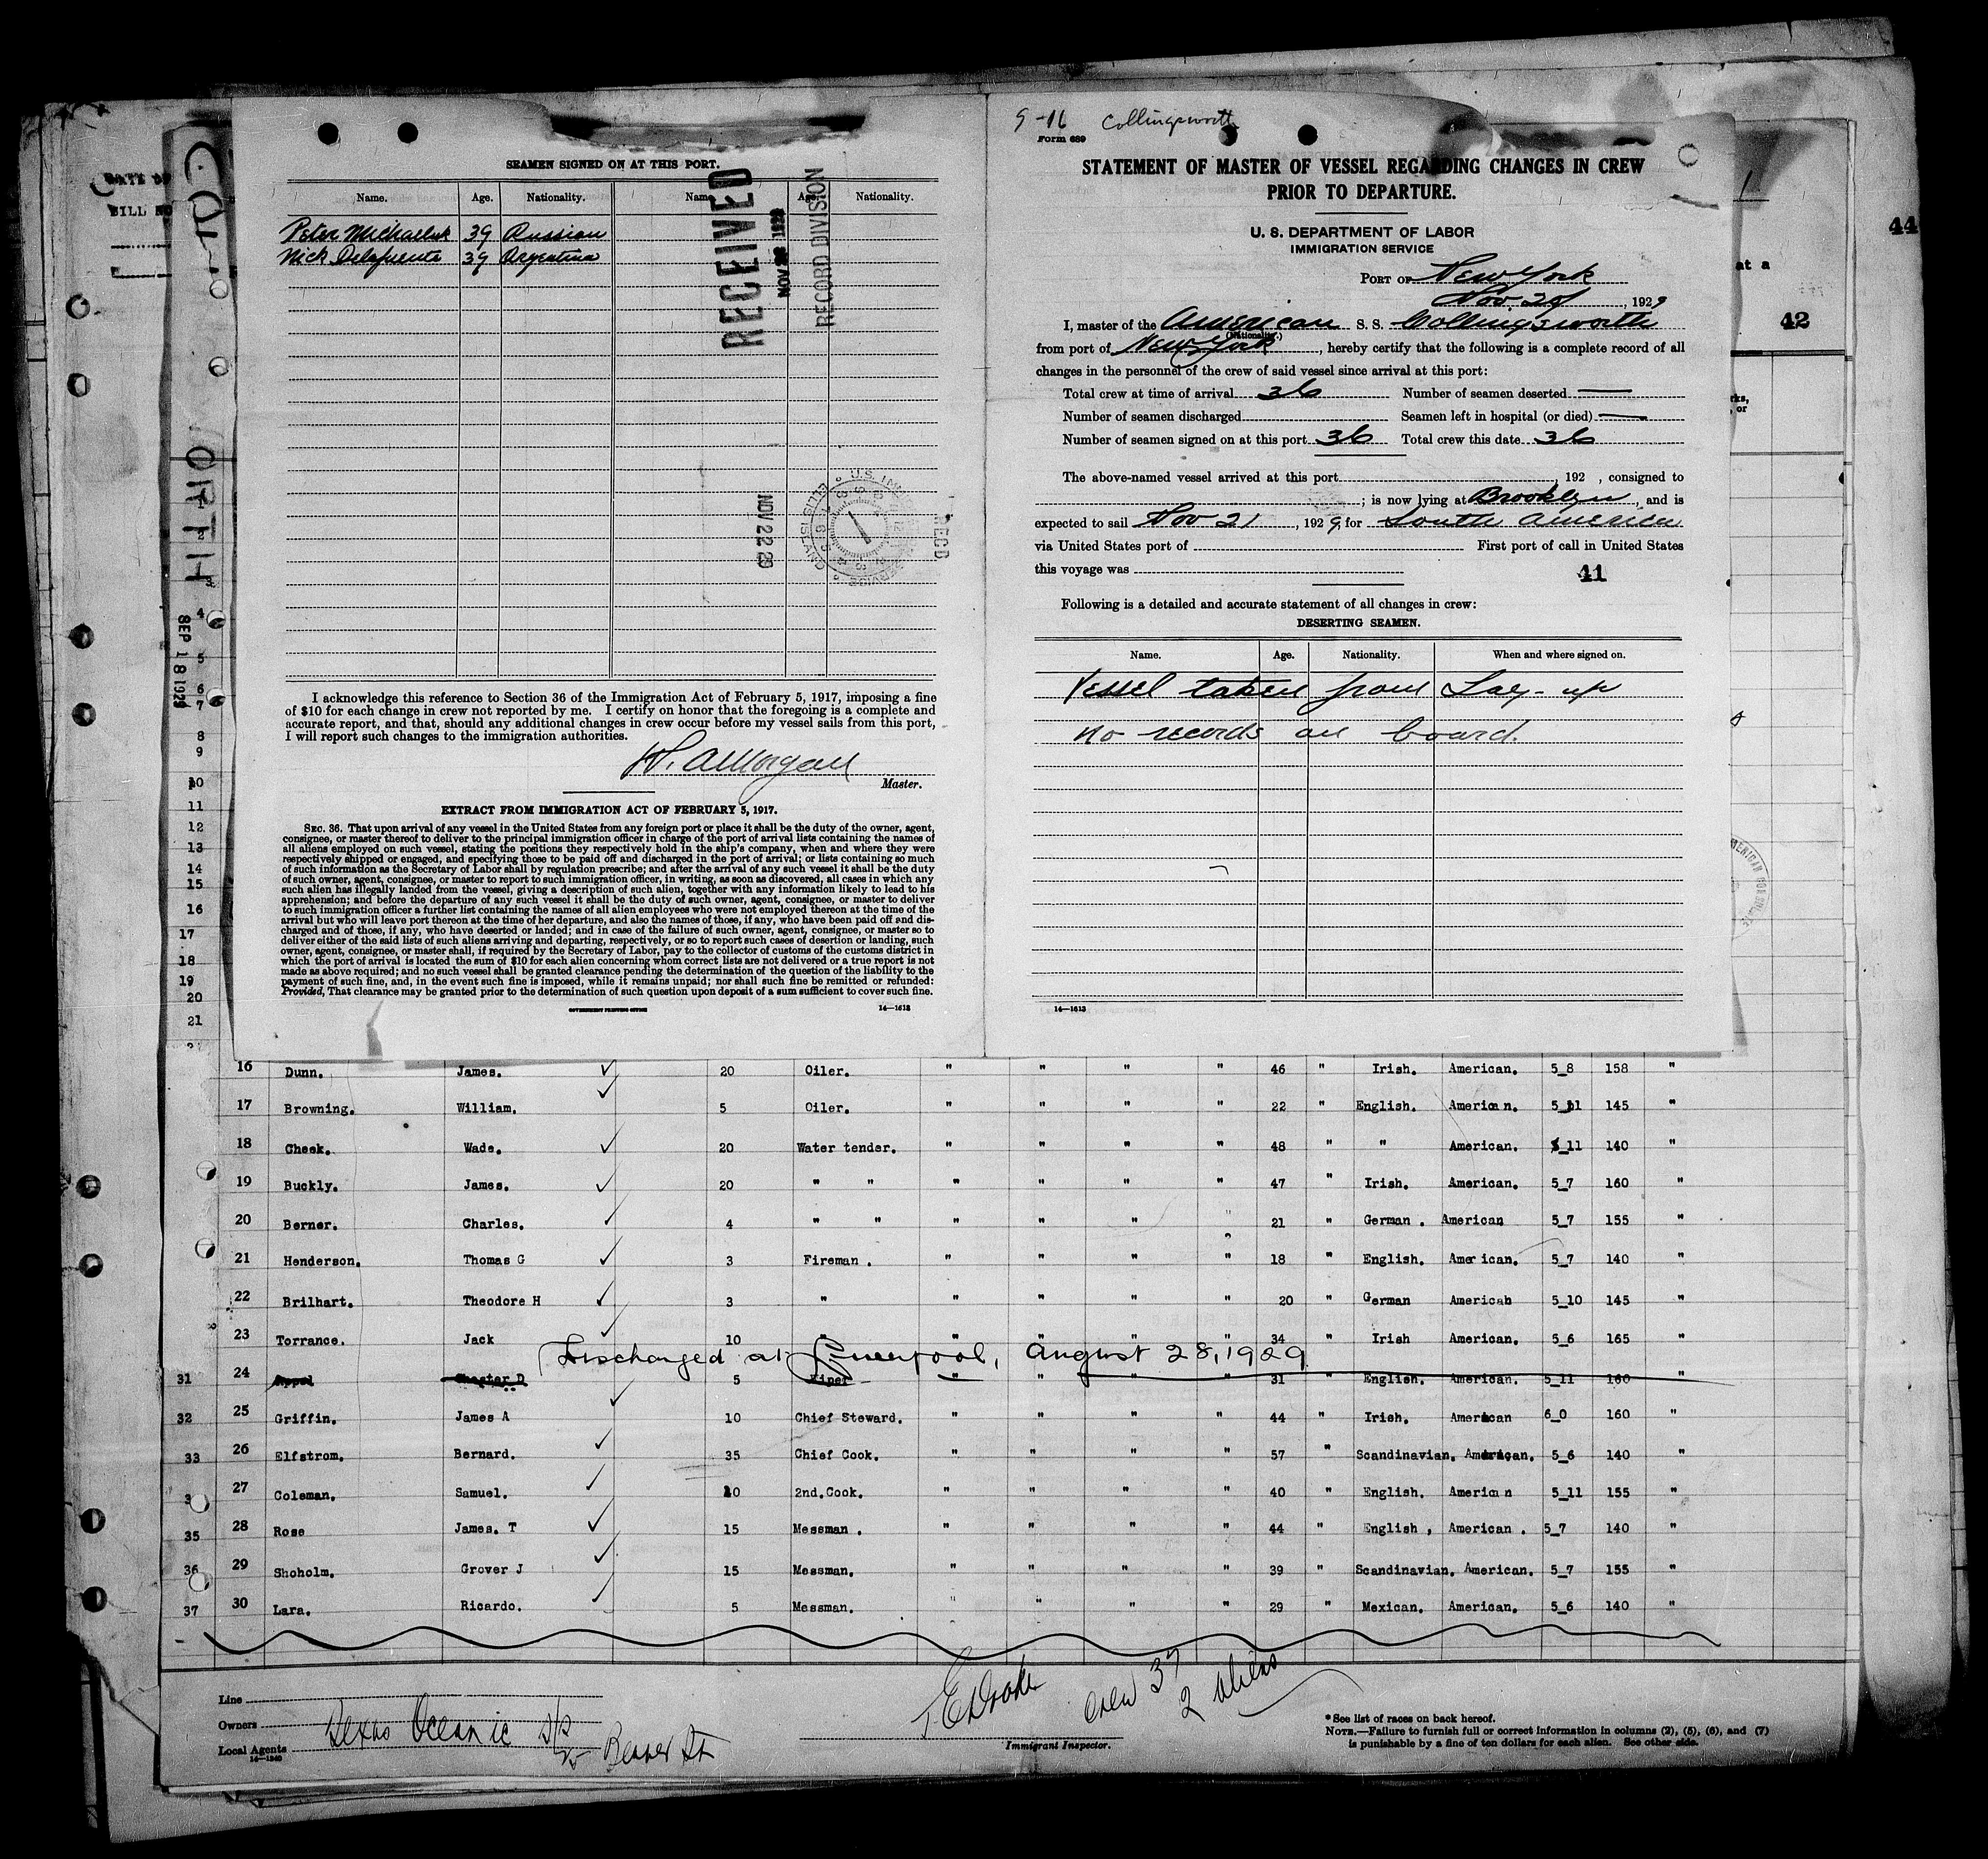 SEAMEN SIGNED ON AT THIS PORT.
Name. Age. Nationality. Name. Age. Nationality.
Peter Michaeluk 39 Russian
Nick Delafuente 39 Argentina
RECEIVED
NOV 1929
RECORD DIVISION
NOV 22 29
REC'D
I acknowledge this reference to Section 36 of the Immigration Act of February 5, 1917, imposing a fine
of $10 for each change in crew not reported by me. I certify on honor that the foregoing is a complete and
accurate report, and that, should any additional changes in crew occur before my vessel sails from this port,
I will report such changes to the immigration authorities.
Morgan
Master.
EXTRACT FROM IMMIGRATION ACT OF FEBRUARY 5, 1917.
SEC. 36. That upon arrival of any vessel in the United States from any foreign port or place it shall be the duty of the owner, agent,
consignee, or master thereof to deliver to the principal immigration officer in charge of the port of arrival lists containing the names of
all aliens employed on such vessel, stating the positions they respectively hold in the ship's company, when and where they were
respectively shipped or engaged, and specifying those to be paid off and discharged in the port of arrival; or lists containing so much
of such information as the Secretary of Labor shall by regulation prescribe; and after the arrival of any such vessel it shall be the duty
of such owner, agent, consignee, or master to report to such immigration officer, in writing, as soon as discovered, all cases in which any
such alien has illegally landed from the vessel, giving a description of such alien, together with any information likely to lead to his
apprehension; and before the departure of any such vessel it shall be the duty of such owner, agent, consignee, or master to deliver
to such immigration officer a further list containing the names of all alien employees who were not employed thereon at the time of the
arrival but who will leave port thereon at the time of her departure, and also the names of those, if any, who have been paid off and dis-
charged and of those, if any, who have deserted or landed; and in case of the failure of such owner, agent, consignee, or master so to
deliver either of the said lists of such aliens arriving and departing, respectively, or so to report such cases of desertion or landing, such
owner, agent, consignee, or master shall, if required by the Secretary of Labor, pay to the collector of customs of the customs district in
which the port of arrival is located the sum of $10 for each alien concerning whom correct lists are not delivered or a true report is not
made as above required; and no such vessel shall be granted clearance pending the determination of the question of the liability to the
payment of such fine, and, in the event such fine is imposed, while it remains unpaid; nor shall such fine be remitted or refunded:
Provided, That clearance may be granted prior to the determination of such question upon deposit of a sum sufficient to cover such fine.
GOVERNMENT PRINTING OFFICE 14—1613
9-16 Collingsworth
Form 689
STATEMENT OF MASTER OF VESSEL REGARDING CHANGES IN CREW
PRIOR TO DEPARTURE.
U. S. DEPARTMENT OF LABOR
IMMIGRATION SERVICE
PORT OF New York
Nov 20, 1929
I, master of the American S. S. Collingsworth
(Nationality.)
from port of New York, hereby certify that the following is a complete record of all
changes in the personnel of the crew of said vessel since arrival at this port:
Total crew at time of arrival 36 Number of seamen deserted —
Number of seamen discharged Seamen left in hospital (or died) —
Number of seamen signed on at this port 36 Total crew this date 36
The above-named vessel arrived at this port , 192 , consigned to
; is now lying at Brooklyn, and is
expected to sail Nov 21, 1929 for South America
via United States port of First port of call in United States
this voyage was
41
Following is a detailed and accurate statement of all changes in crew:
DESERTING SEAMEN.
Name. Age. Nationality. When and where signed on.
Vessel taken from Lay-up
no records on board.
14—1613
44
42
at a
SEP 18 1929
16 Dunn. James. 20 Oiler. " " " " 46 " Irish. American. 5_8 158 "
17 Browning. William. 5 Oiler. " " " " 22 " English. American. 5_11 145 "
18 Cheek. Wade. 20 Water tender. " " " " 48 " " American. 5_11 140 "
19 Buckly. James. 20 " " " " " " 47 " Irish. American. 5_7 160 "
20 Berner. Charles. 4 " " " " " " 21 " German . American 5_7 155 "
21 Henderson. Thomas G 3 Fireman . " " " " 18 " English. American. 5_7 140 "
22 Brilhart. Theodore H 3 " " " " " 20 " German American 5_10 145 "
23 Torrance. Jack 10 " " " " " 34 " Irish American. 5_6 165 "
Discharged at Liverpool, August 28, 1929
31 24 Appel Chester D 5 Wiper " " " " 31 " English. American. 5_11 160 "
32 25 Griffin. James A 10 Chief Steward. " " " " 44 " Irish. American 6_0 160 "
33 26 Elfstrom. Bernard. 35 Chief Cook. " " " " 57 " Scandinavian. American. 5_6 140 "
27 Coleman. Samuel. 20 2nd.Cook. " " " " 40 " English. American 5_11 155 "
35 28 Rose James. T 15 Messman . " " " " 44 " English , American . 5_7 140 "
36 29 Shoholm. Grover J 15 Messman. " " " " 39 " Scandinavian. American. 5_7 155 "
37 30 Lara. Ricardo. 5 Messman. " " " " 29 " Mexican. American. 5_6 140 "
Line
Owners
Local Agents
Texas Oceanic S/S
25 Beaver St
14—1240
Drake
Immigrant Inspector.
Crew 37
2 Aliens
* See list of races on back hereof.
NOTE.—Failure to furnish full or correct information in columns (2), (5), (6), and (7)
is punishable by a fine of ten dollars for each alien. See other side.